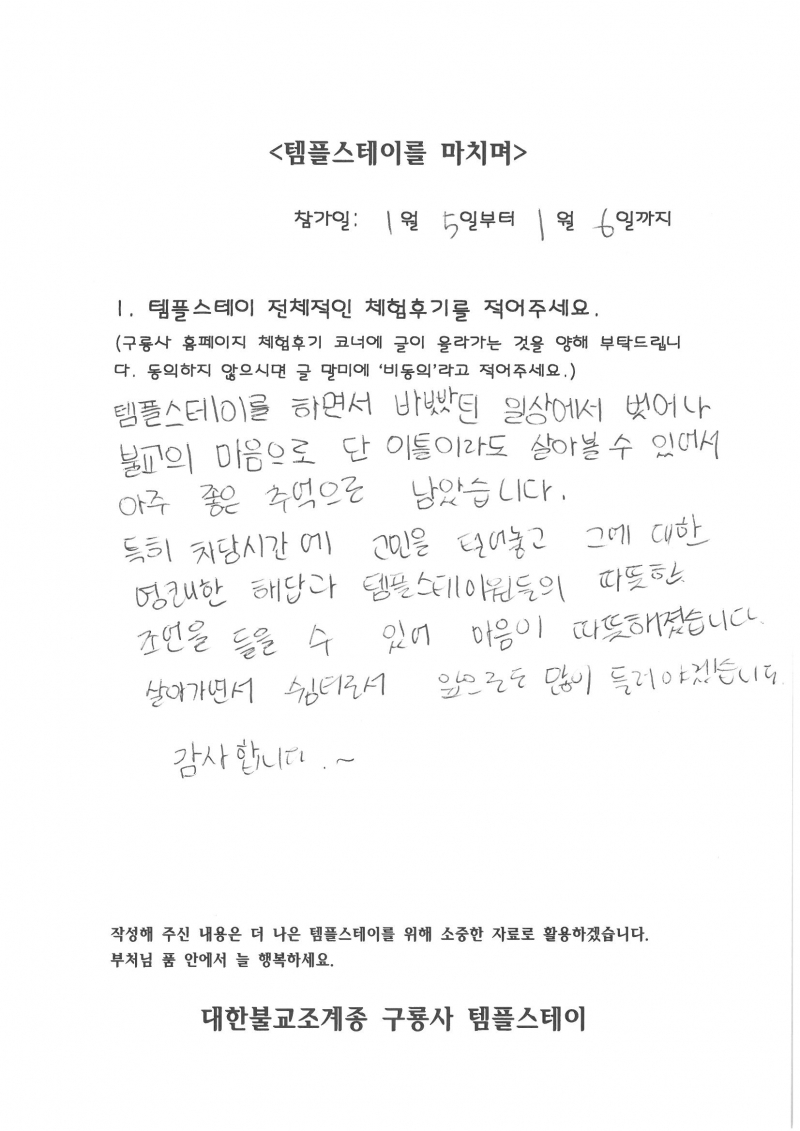 <템플스테이를 마치며>
참가일: 1월 5일부터 1월 6일까지
1. 템플스테이 전체적인 체험후기를 적어주세요.
(구룡사 홈페이지 체험후기 코너에 글이 올라가는 것을 양해 부탁드립니
다. 동의하지 않으시면 글 말미에 '비동의'라고 적어주세요.)
템플스테이를 하면서 바빴던 일상에서 벗어나
불교의 마음으로 단 이틀이라도 살아볼 수 있어서
아주 좋은 추억으로 남았습니다.
특히 차담시간에 고민을 털어놓고 그에 대한
명쾌한 해답과 템플스테이원들의 따뜻한
조언을 들을 수 있어 마음이 따뜻해졌습니다.
살아가면서 쉼터로서 앞으로도 많이 들러야겠습니다.
감사합니다.~
작성해 주신 내용은 더 나은 템플스테이를 위해 소중한 자료로 활용하겠습니다.
부처님 품 안에서 늘 행복하세요.
대한불교조계종 구룡사 템플스테이